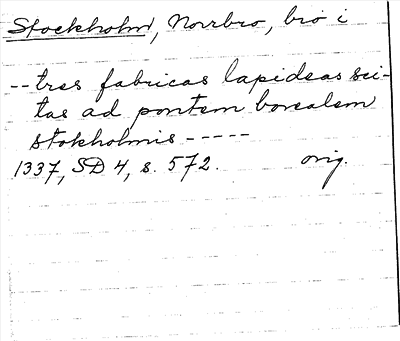 Stockholm, Norrbro, bro i
-- tres fabricas lapideas sci-
tas ad pontem borealem
stokholmis -----
1337, SD 4, s. 572. orig.